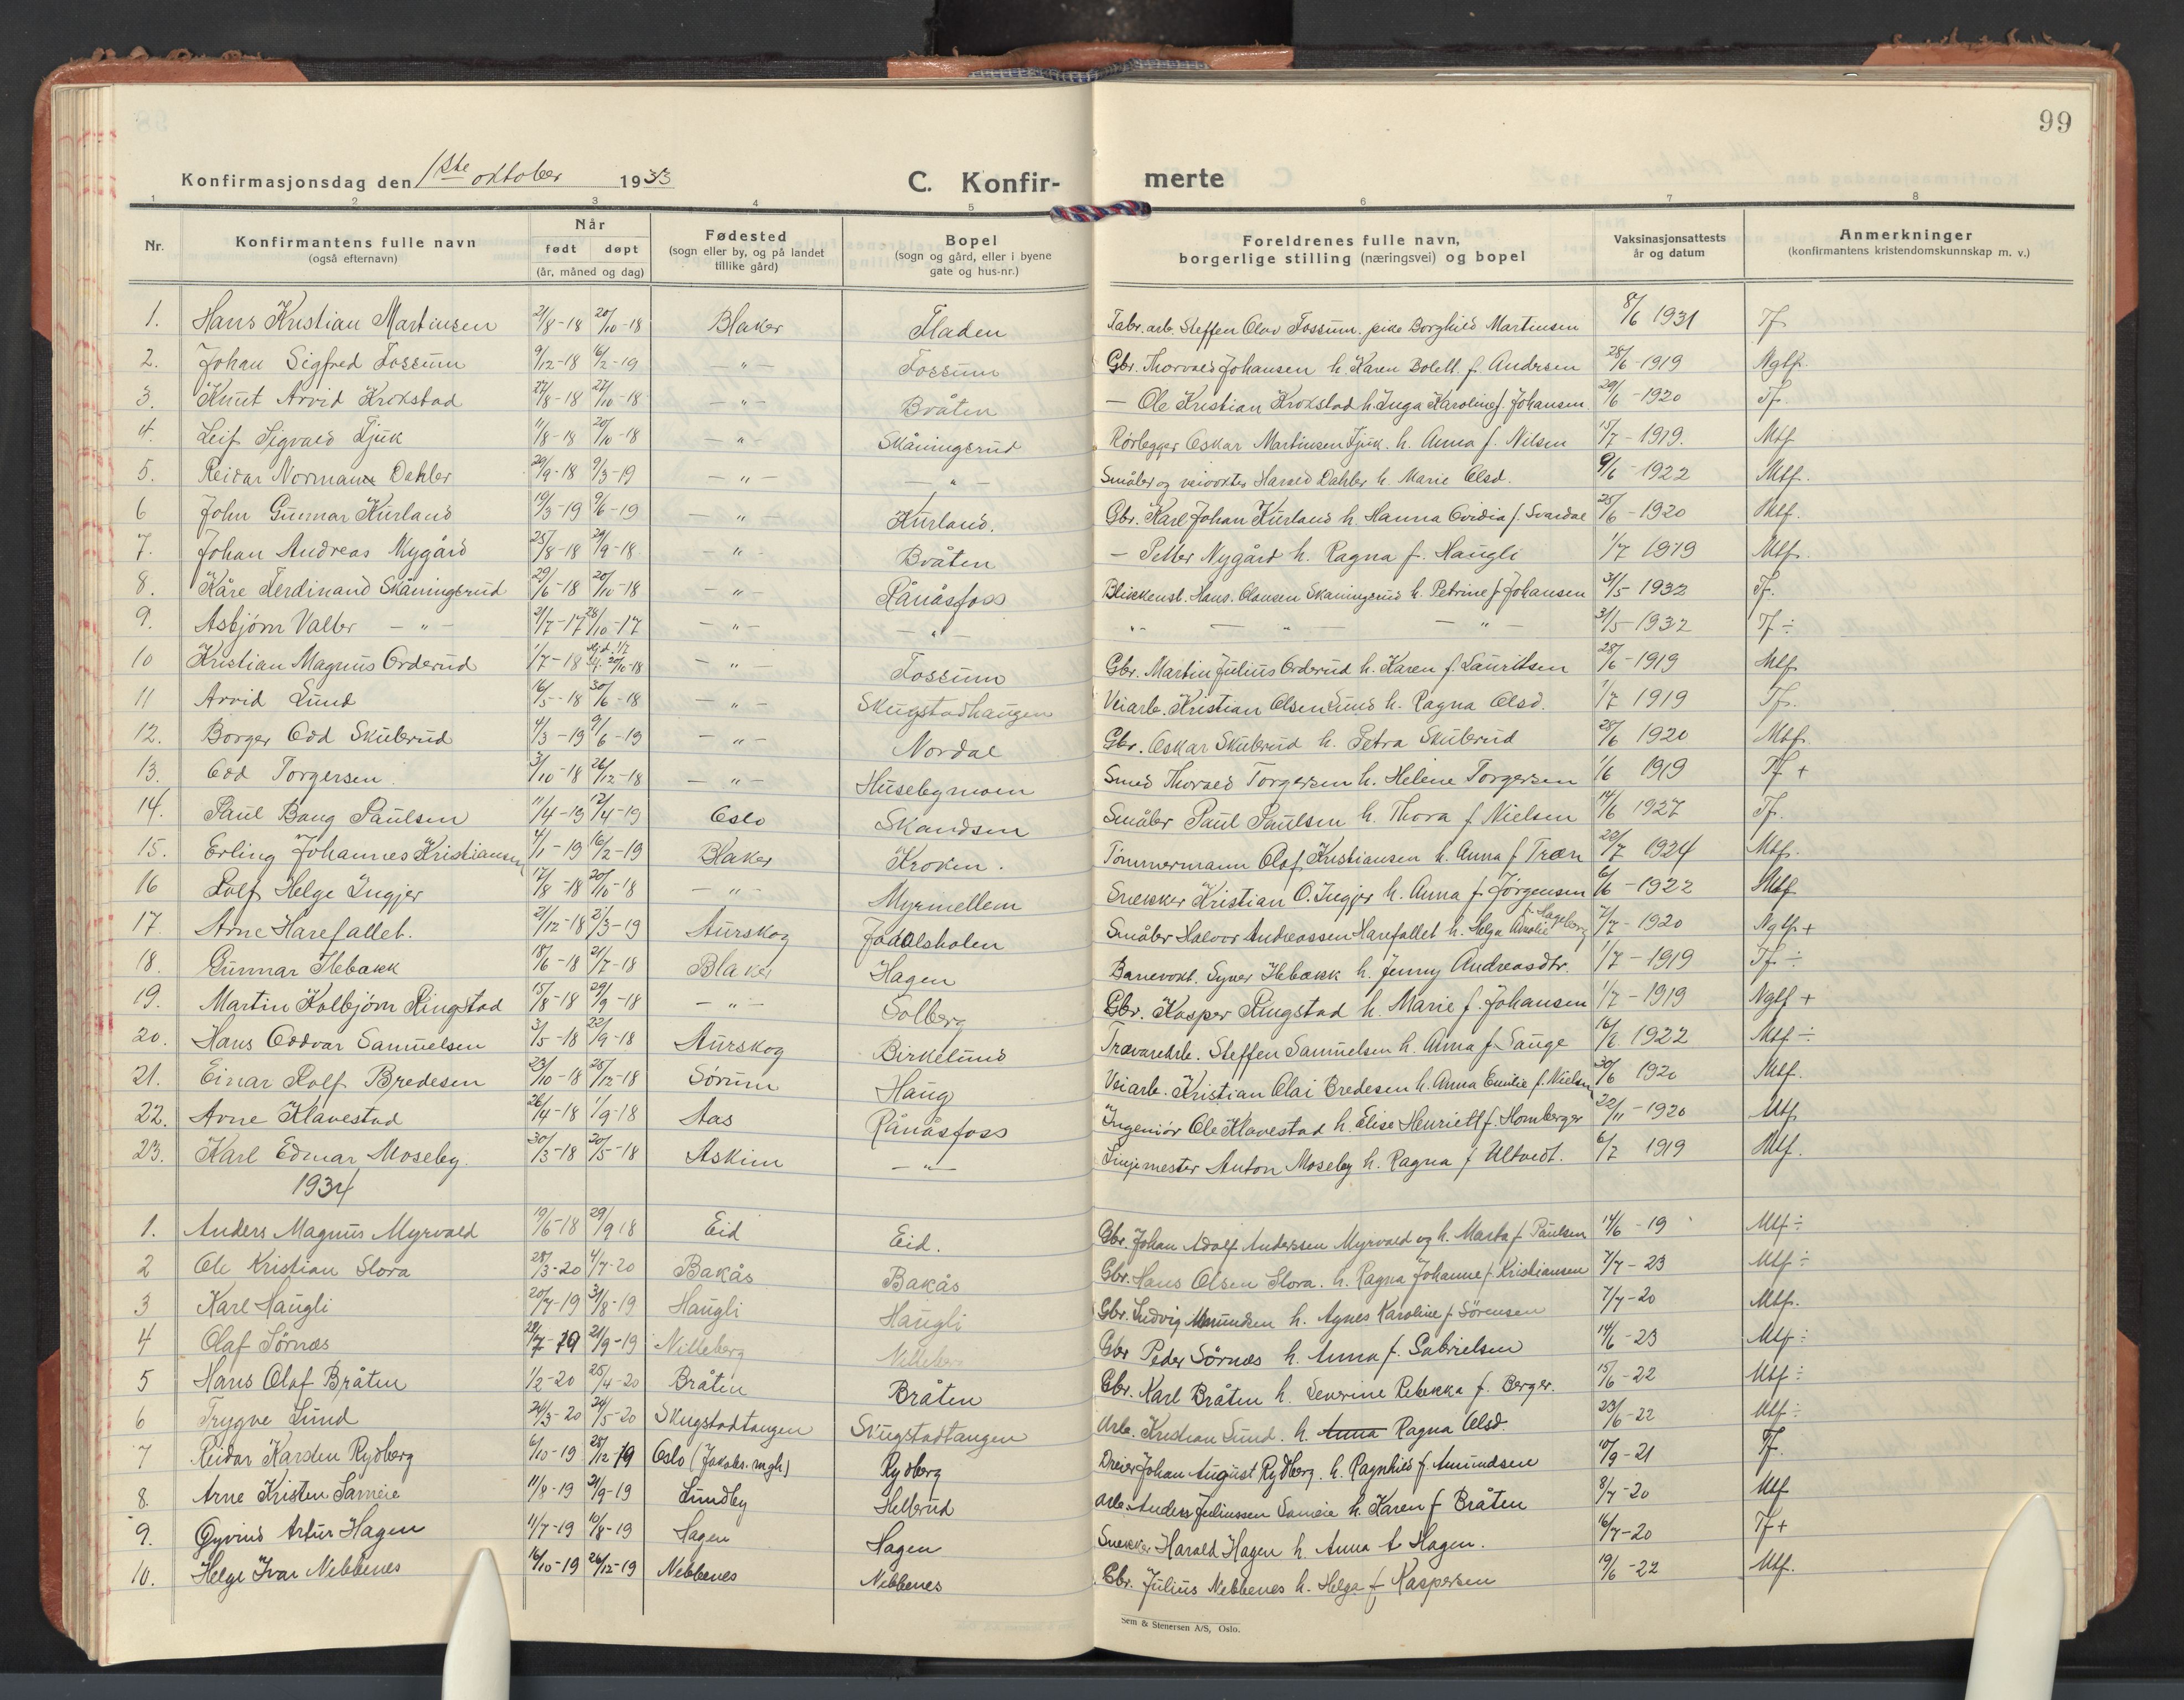 99
Konfirmasjonsdag den 1ste oktober 1933 C. Konfir- merte
1 2 3 4 5 6 7 8
Nr. Konfirmantens fulle navn (også efternavn) Når født døpt (år, måned og dag) Fødested (sogn eller by, og på landet tillike gård) Bopel (sogn og gård, eller i byene gate og hus-nr.) Foreldrenes fulle navn, borgerlige stilling (næringsvei) og bopel Vaksinasjonsattests år og datum Anmerkninger (konfirmantens kristendomskunnskap m. v.)
1. Hans Kristian Martinsen 21/8-18 20/10-18 Blaker Fladen Fabr. arb. Steffen Olav Fossum. pike Borghild Martinsen 8/6 1931 Tf.
2. Johan Sigfred Fossum 9/12-18 16/2-19 — " — Fossum Gbr. Thorvald Johansen h. Karen Bolett. f. Andersen 28/6-1919 Ngtf.
3. Knut Arvid Krokstad 27/8-18 27/10-18 — " — Bråten — Ole Kristian Krokstad h. Inga Karoline f. Johansen 29/6-1920 Tf.
4. Leif Sigvald Tjuk 11/8-18 20/10-18 — " — Skåningsrud Rørlegger Oskar Martinsen Tjuk. h. Anna f. Nilsen 15/7-1919. Mtf
5. Reidar Norman Dahler 29/9-18 9/3-19 — " — — " — Småbr og veivokter Harald Dahler h. Marie Olsd. 9/6-1922 Mtf.
6 John Gunnar Kurland 19/3-19 9/6-19 — " — Kurland. Gbr. Karl Johan Kurland h. Hanna Ovidia f. Svardal 25/6-1920 Mtf.
7. Johan Andreas Nygård 25/8-18 29/9-18. — " — Bråten — Petter Nygård h. Ragna f. Haugli 1/7 1919 Mtf.
8. Kåre Ferdinand Skåningsrud 29/6-18 20/10-18 — " — Rånåsfoss Blikkensl. Hans Olausen Skaningsrud h. Petrine f. Johansen 31/5-1932 Tf.
9. Asbjørn Valter — " — 21/7-17 28/10-17 — " — — " — " — " — " — 31/5-1932 Tf ÷
10 Kristian Magnus Orderud 1/7-18 20/10-18 — " — Fossum Gbr. Martin Julius Orderud h. Karen f. Lauritsen 28/6-1919 Mtf.
11 Arvid Lund 16/5-18 30/6-18 — " — Skugstadhaugen Veiarb. Kristian Olsen Lund h. Ragna Olsd. 1/7 1919 Tf.
12. Borger Odd Skulerud 4/3-19 9/6-19 — " — Nordal Gbr. Oskar Skulerud h. Petra Skulerud 28/6 1920 Mtf.
13. Odd Torgersen. 3/10-18 26/12-18 — " — Husebymoen Smed Thorvald Torgersen h. Helene Torgersen 1/6 1919 Tf +
14. Paul Bang Paulsen 11/4-19 12/4-19 Oslo Skandsen Småbr Paul Paulsen h. Thora f Nielsen 14/6 1927 Tf.
15. Erling Johannes Kristiansen 4/1-19 16/2-19 Blaker Kroken. Tømmermann Olaf Kristiansen h. Anna f Træn 20/7 1924 Mtf.
16 Rolf Helge Ingjer 17/8-18 20/10-18 — " — Myrmellem Snekker Kristian O. Ingjer h. Anna f. Jørgensen 6/6-1922 Mtf
17. Arne Harefallet. 21/12-18 2/3-19 Aurskog Jødalsholen Småbr Halvor Andreassen Harefallet h. Helga Amalie f. Hageberg 7/7-1920 Ngtf+
18. Gunnar Ilebakk 18/6-18 21/7-18 Blaker Hagen Banevokt. Syver Ilebakk h. Jenny Andreasdtr. 1/7-1919 Tf ÷
19. Martin Kolbjørn Ringstad 15/8-18 29/9-18 — " — Solberg Gbr. Kasper Ringstad h. Marie f. Johansen 1/7-1919 Ngtf +
20. Hans Oddvar Samuelsen 3/5-18 22/9-18 Aurskog Birkelund Trævarearb. Steffen Samuelsen h. Anna f Lauge 16/6 1922 Mtf ÷
21. Einar Rolf Bredesen 23/10-18 25/12-18 Sørum Haug Veiarb. Kristian Olai Bredesen h. Anna Emilie f. Nielsen 30/6 1920 Mtf.
22. Arne Klavestad 26/4-18 1/9-18 Aas Rånåsfoss Ingeniør Ole Klavestad h. Elise Henriett f. Homberger 22/11-1920 Mtf.
23. Karl Edmar Moseby. 30/3-18 20/5-18 Askim — " — Linjemester Anton Moseby h. Ragna f Ultvedt. 6/7 1919 Mtf.
1934
1. Anders Magnus Myrvold 19/6-18 29/9 18 Eid Eid. Gbr. Johan Adolf Anderssen Myrvold og h. Marta f Paulsen 14/6-19 Mtf ÷
2 Ole Kristian Slora 28/3-20 4/7-20 Bakås Bakås Gbr. Hans Olsen Slora. h. Ragna Johanne f. Kristiansen 7/7-23 Mtf ÷
3 Karl Haugli 20/7-19 31/8-19 Haugli Haugli Gbr. Ludvig Amundsen h. Agnes Karoline f. Sørensen 7/7-20 Mtf.
4 Olaf Sørnæs 22/7-19 21/9-19 Nilleberg Nilleberg Gbr Peder Sørnæs h. Anna f. Gabrielsen 14/6-23 Mtf ÷
5 Hans Olaf Bråten 1/2-20 25/4-20 Bråten Bråten Gbr. Karl Bråten h. Severine Rebekka f. Berger. 15/6-22 Mtf ÷
6 Trygve Lund 24/3-20 24/5-20 Skugstadtangen Skugstadtangen Arb. Kristian Lund. h. Anna Ragna Olsd. 23/6-22 Mtf ÷
7 Reidar Karsten Rydberg 6/10-19 28/12 19 Oslo (Jakobs. mgh) Rydberg Dreier Johan August Rydberg. h. Ragnhild f. Amundsen 10/9-21 Tf.
8. Arne Kristen Sameie 11/8-19 21/9-19 Lundby Hellerud Arb. Anders Juliussen Sameie h. Karen f Bråten 8/7-20 Mtf
9. Øyvind Artur Hagen 11/7-19 10/8-19 Hagen Hagen Snekker Harald Hagen h. Anna f. Hagen. 16/7-20 Tf+
10. Helge Ivar Nebbenes 16/10-19 26/12-19 Nebbenes Nebbenes Gbr. Julius Nebbenes h. Helga f Kaspersen 19/6-22 Mtf.
Sem & Stenersen A/S, Oslo.